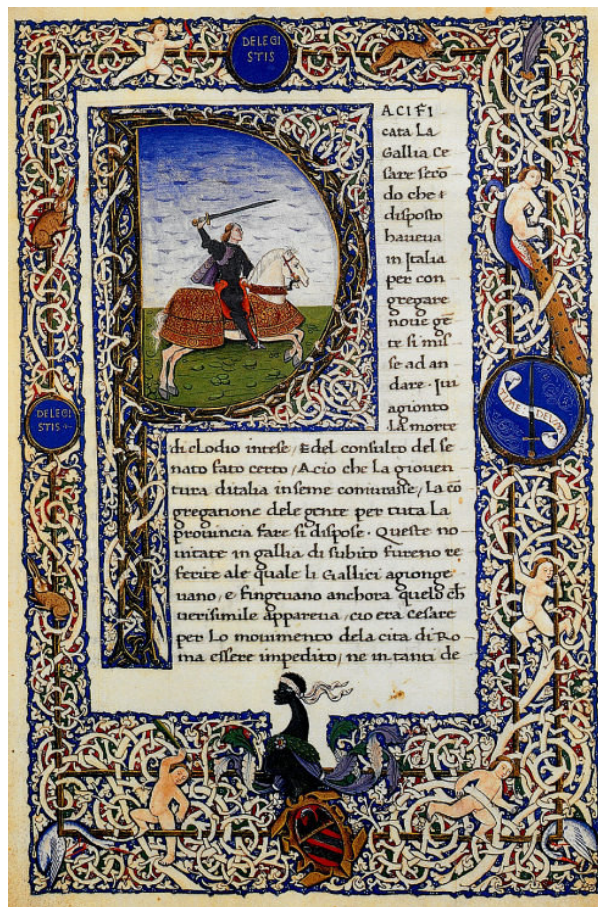 DELEGI
STIS
ACIFI
cata La
Gallia Ce
sare secō
do che
disposto
haueua
in Italia
per con
gregare
noue gē
te si mis
se ad an
dare. Iui
agionto
La morte
DELEGI
STIS
TIME DEUM
di clodio intese, E del consulto del se
nato fato certo, Acio che la giouen
tura ditalia inseme coniurasse, La cō
gregatione dele gente per tuta La
prouincia fare si dispose. Queste no
uitate in gallia di subito fureno re
ferite ale quale li Gallici agionge
uano, e fingeuano anchora quelo ch
uerisimile appareua, cio era cesare
per Lo mouimento dela cita di Ro
ma essere impedito, ne in tanti de